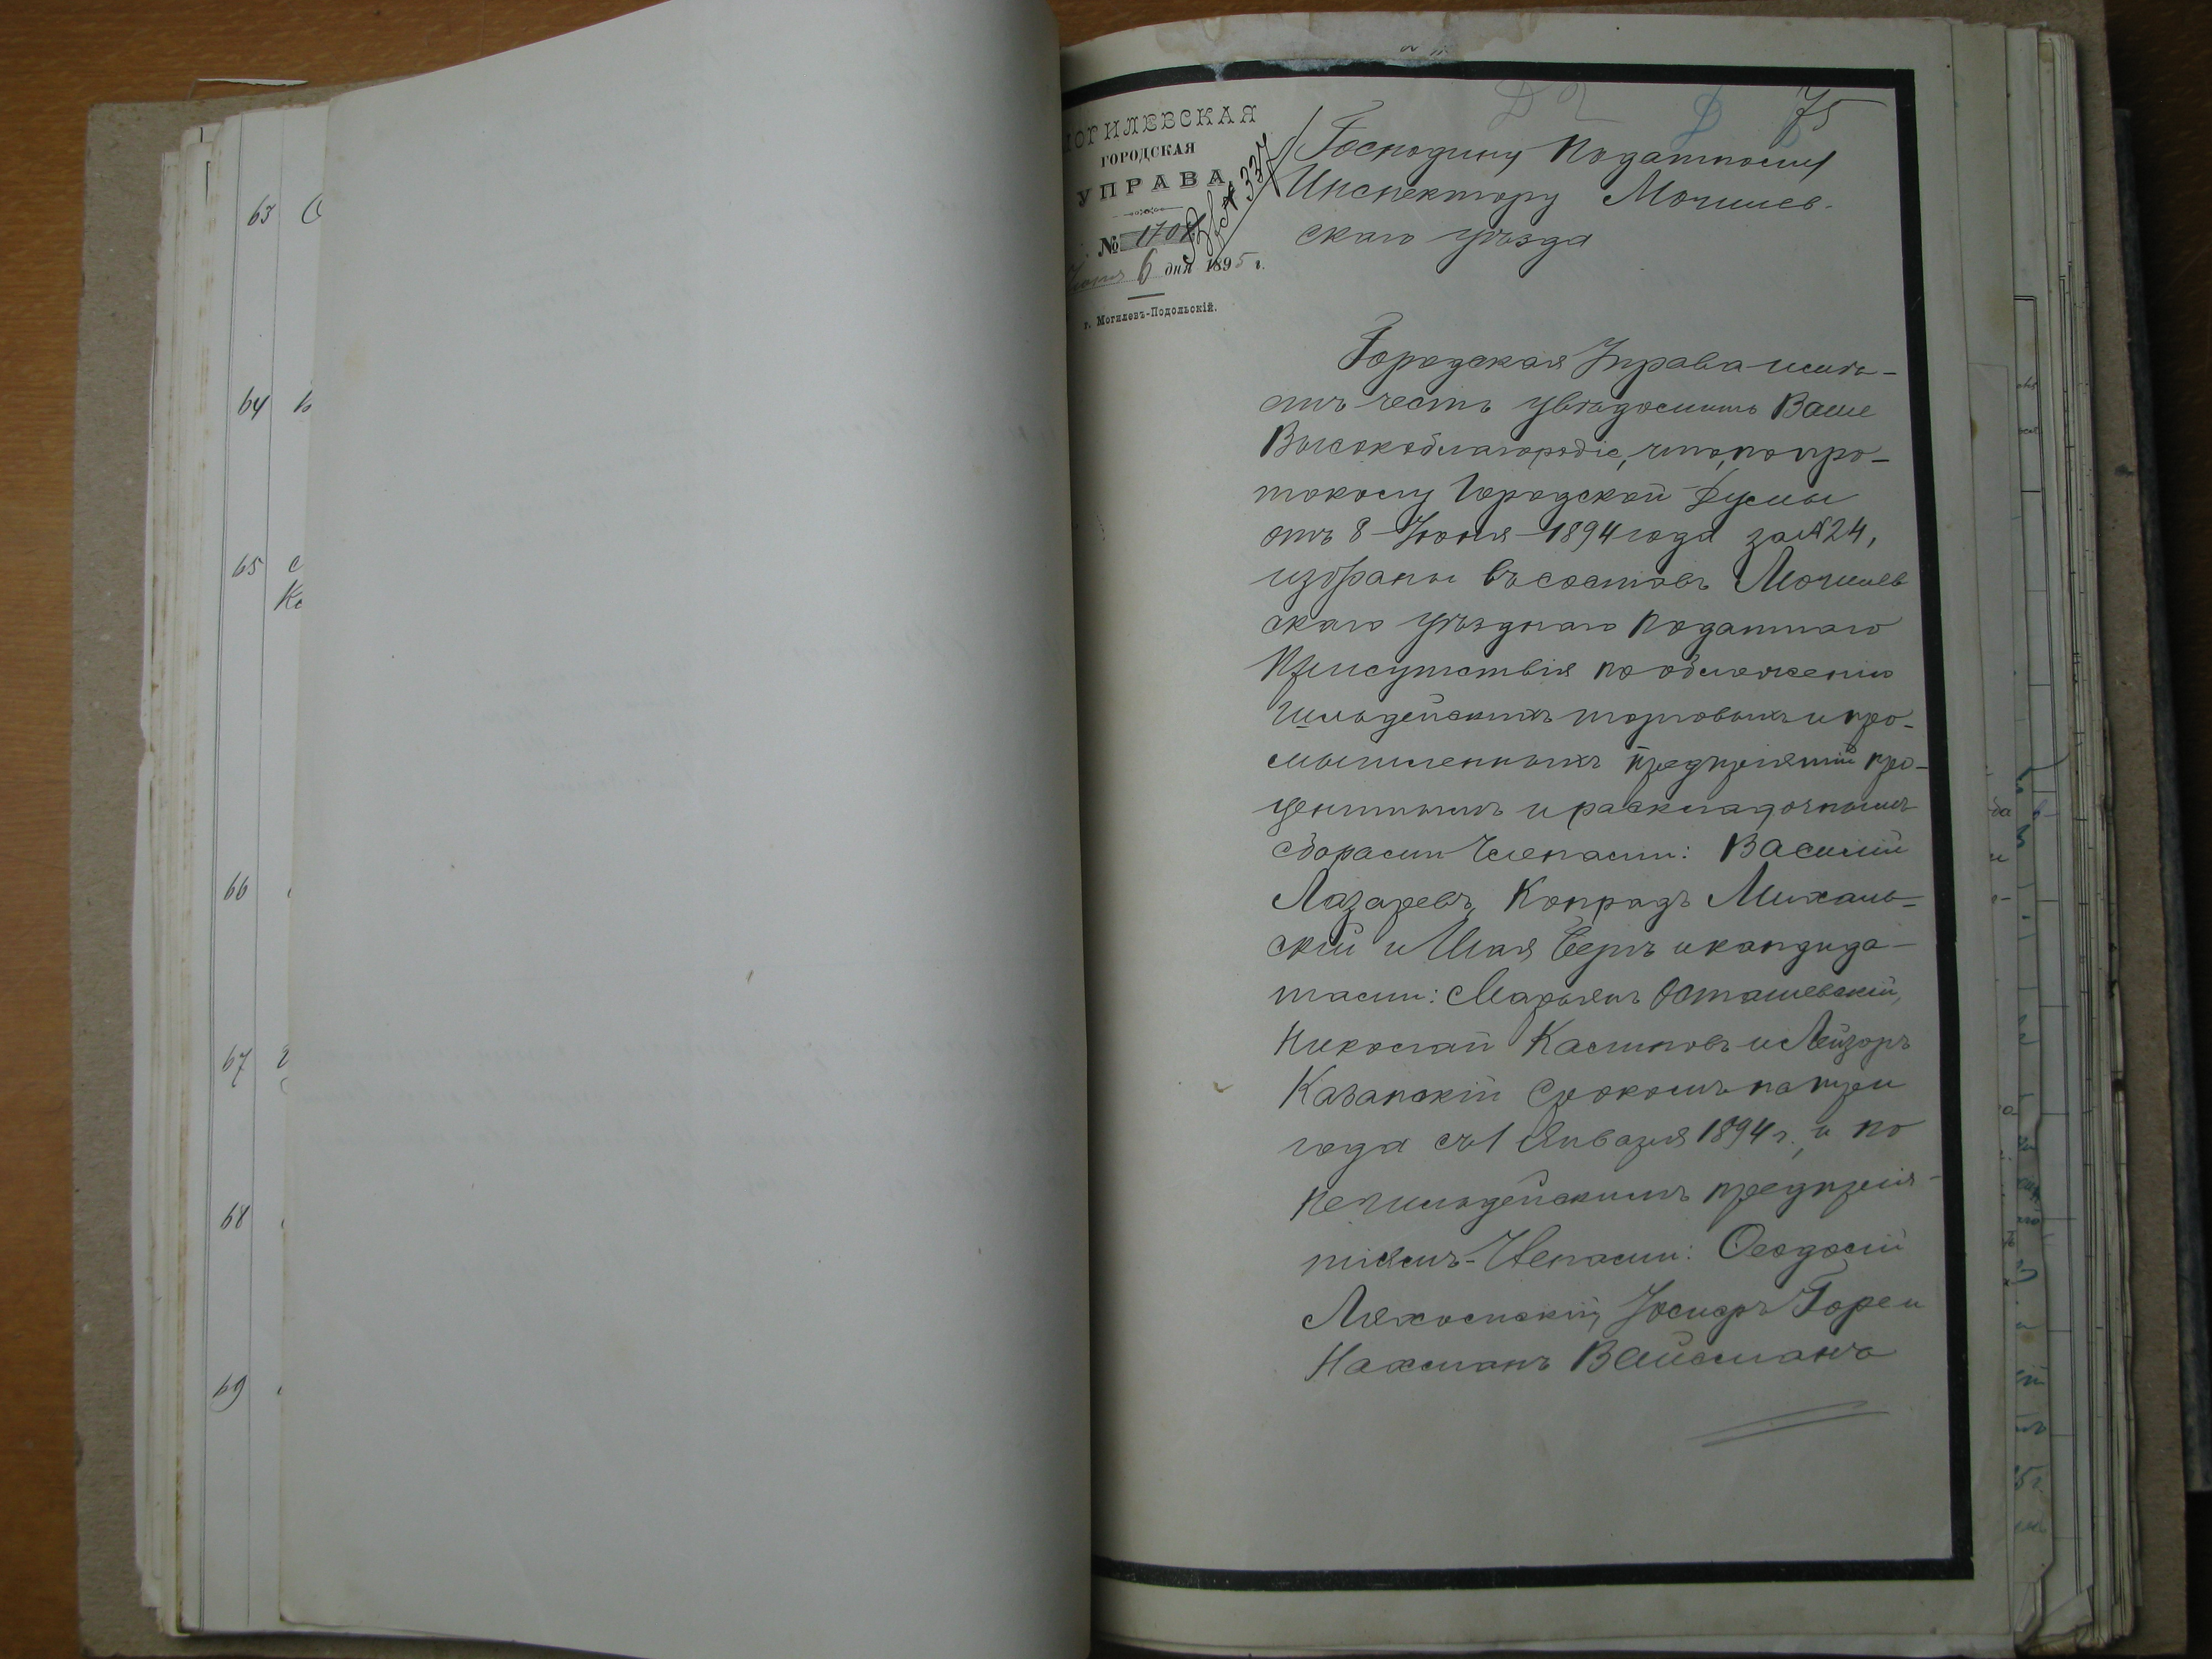 63
64
65
66
67
68
69
МОГИЛЕВСКАЯ
ГОРОДСКАЯ
УПРАВА
№ 1708
Вх № 337
6 дня 1895 г.
г. Могилевъ-Подольскій.
75
Господину Податному
Инспектору Могилев-
скаго уѣзда
Городская Управа имѣ-
етъ честь увѣдомить Ваше
Высокоблагородіе, что, по про-
токолу Городской Думы
отъ 8 Іюня 1894 года за № 24,
избраны въ составъ Могилев
скаго уѣзднаго Податнаго
Присутствія по обложенію
Гильдейскихъ торговыхъ и про-
мышленныхъ предпріятій про-
центнымъ и раскладочнымъ
сборами Членами: Василій
Лазаревъ, Конрадъ Михаль-
скій и Шая Беръ и кандида-
тами: Марьянъ Осташевскій,
Николай Калиновъ и Лейзоръ
Казанскій срокомъ на три
года съ 1 Января 1894 г. и по
негильдейскимъ предпрія-
тіямъ - Членами: Ѳеодосій
Ляхоцкій, Іосифъ Горе и
Нахманъ Вайсманъ